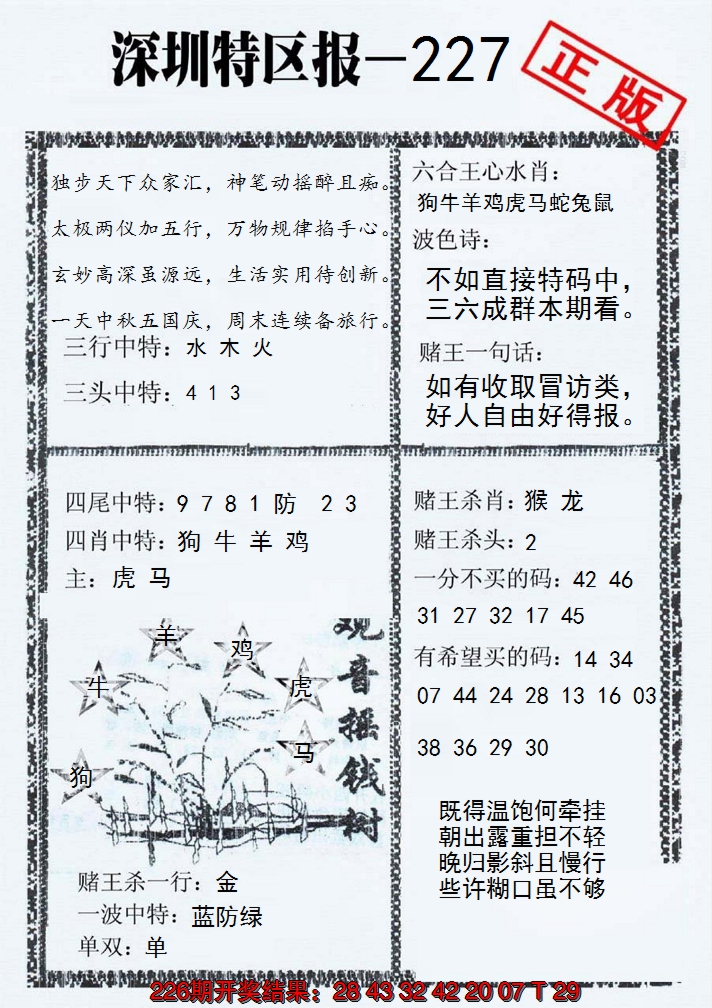 深圳特区报－227
正版
独步天下众家汇，神笔动摇醉且痴。
太极两仪加五行，万物规律掐手心。
玄妙高深虽源远，生活实用待创新。
一天中秋五国庆，周末连续备旅行。
三行中特：水 木 火
三头中特：4 1 3
六合王心水肖：
狗牛羊鸡虎马蛇兔鼠
波色诗：
不如直接特码中，
三六成群本期看。
赌王一句话：
如有收取冒访类，
好人自由好得报。
四尾中特：9 7 8 1 防 2 3
四肖中特：狗 牛 羊 鸡
主：虎 马
羊
鸡
牛
虎
马
狗
观音摇钱树
赌王杀一行：金
一波中特：蓝防绿
单双：单
赌王杀肖：猴 龙
赌王杀头：2
一分不买的码：42 46
31 27 32 17 45
有希望买的码：14 34
07 44 24 28 13 16 03
38 36 29 30
既得温饱何牵挂
朝出露重担不轻
晚归影斜且慢行
些许糊口虽不够
226期开奖结果：28 43 32 42 20 07 T 29